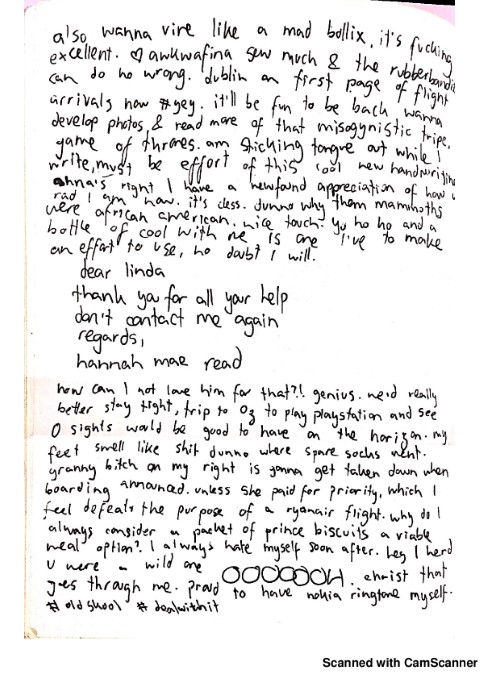 also wanna vire like a mad bollix, it's fucking
excellent. ♡ awkwafina sew much & the rubberbandits
can do no wrong. dublin on first page of flight
arrivals now #yey. it'll be fun to be back, wanna
develop photos, & read more of that misogynistic tripe,
game of thrones. am sticking tongue out while I
write, must be effort of this cool new handwriting
ahna's right I have a newfound appreciation of how
rad I am now. it's class. dunno why them mammoths
were african american. nice touch. yo ho ho and a
bottle of cool with me is one I've to make
an effort to use, no doubt I will.
dear linda
thank you for all your help
don't contact me again
regards,
hannah mae read
how can I not love him for that?! genius. me'd really
better stay tight, trip to Oz to play playstation and see
0 sights would be good to have on the horizon. my
feet smell like shit dunno where spare socks went.
granny bitch on my right is gonna get taken down when
boarding announced. unless she paid for priority, which I
feel defeats the purpose of a ryanair flight. why do I
always consider a packet of prince biscuits a viable
meal option?. I always hate myself soon after. hey I herd
u were a wild one OOOOOOH. christ that
goes through me. proud to have nokia ringtone myself.
#oldskool #dealwithit
Scanned with CamScanner